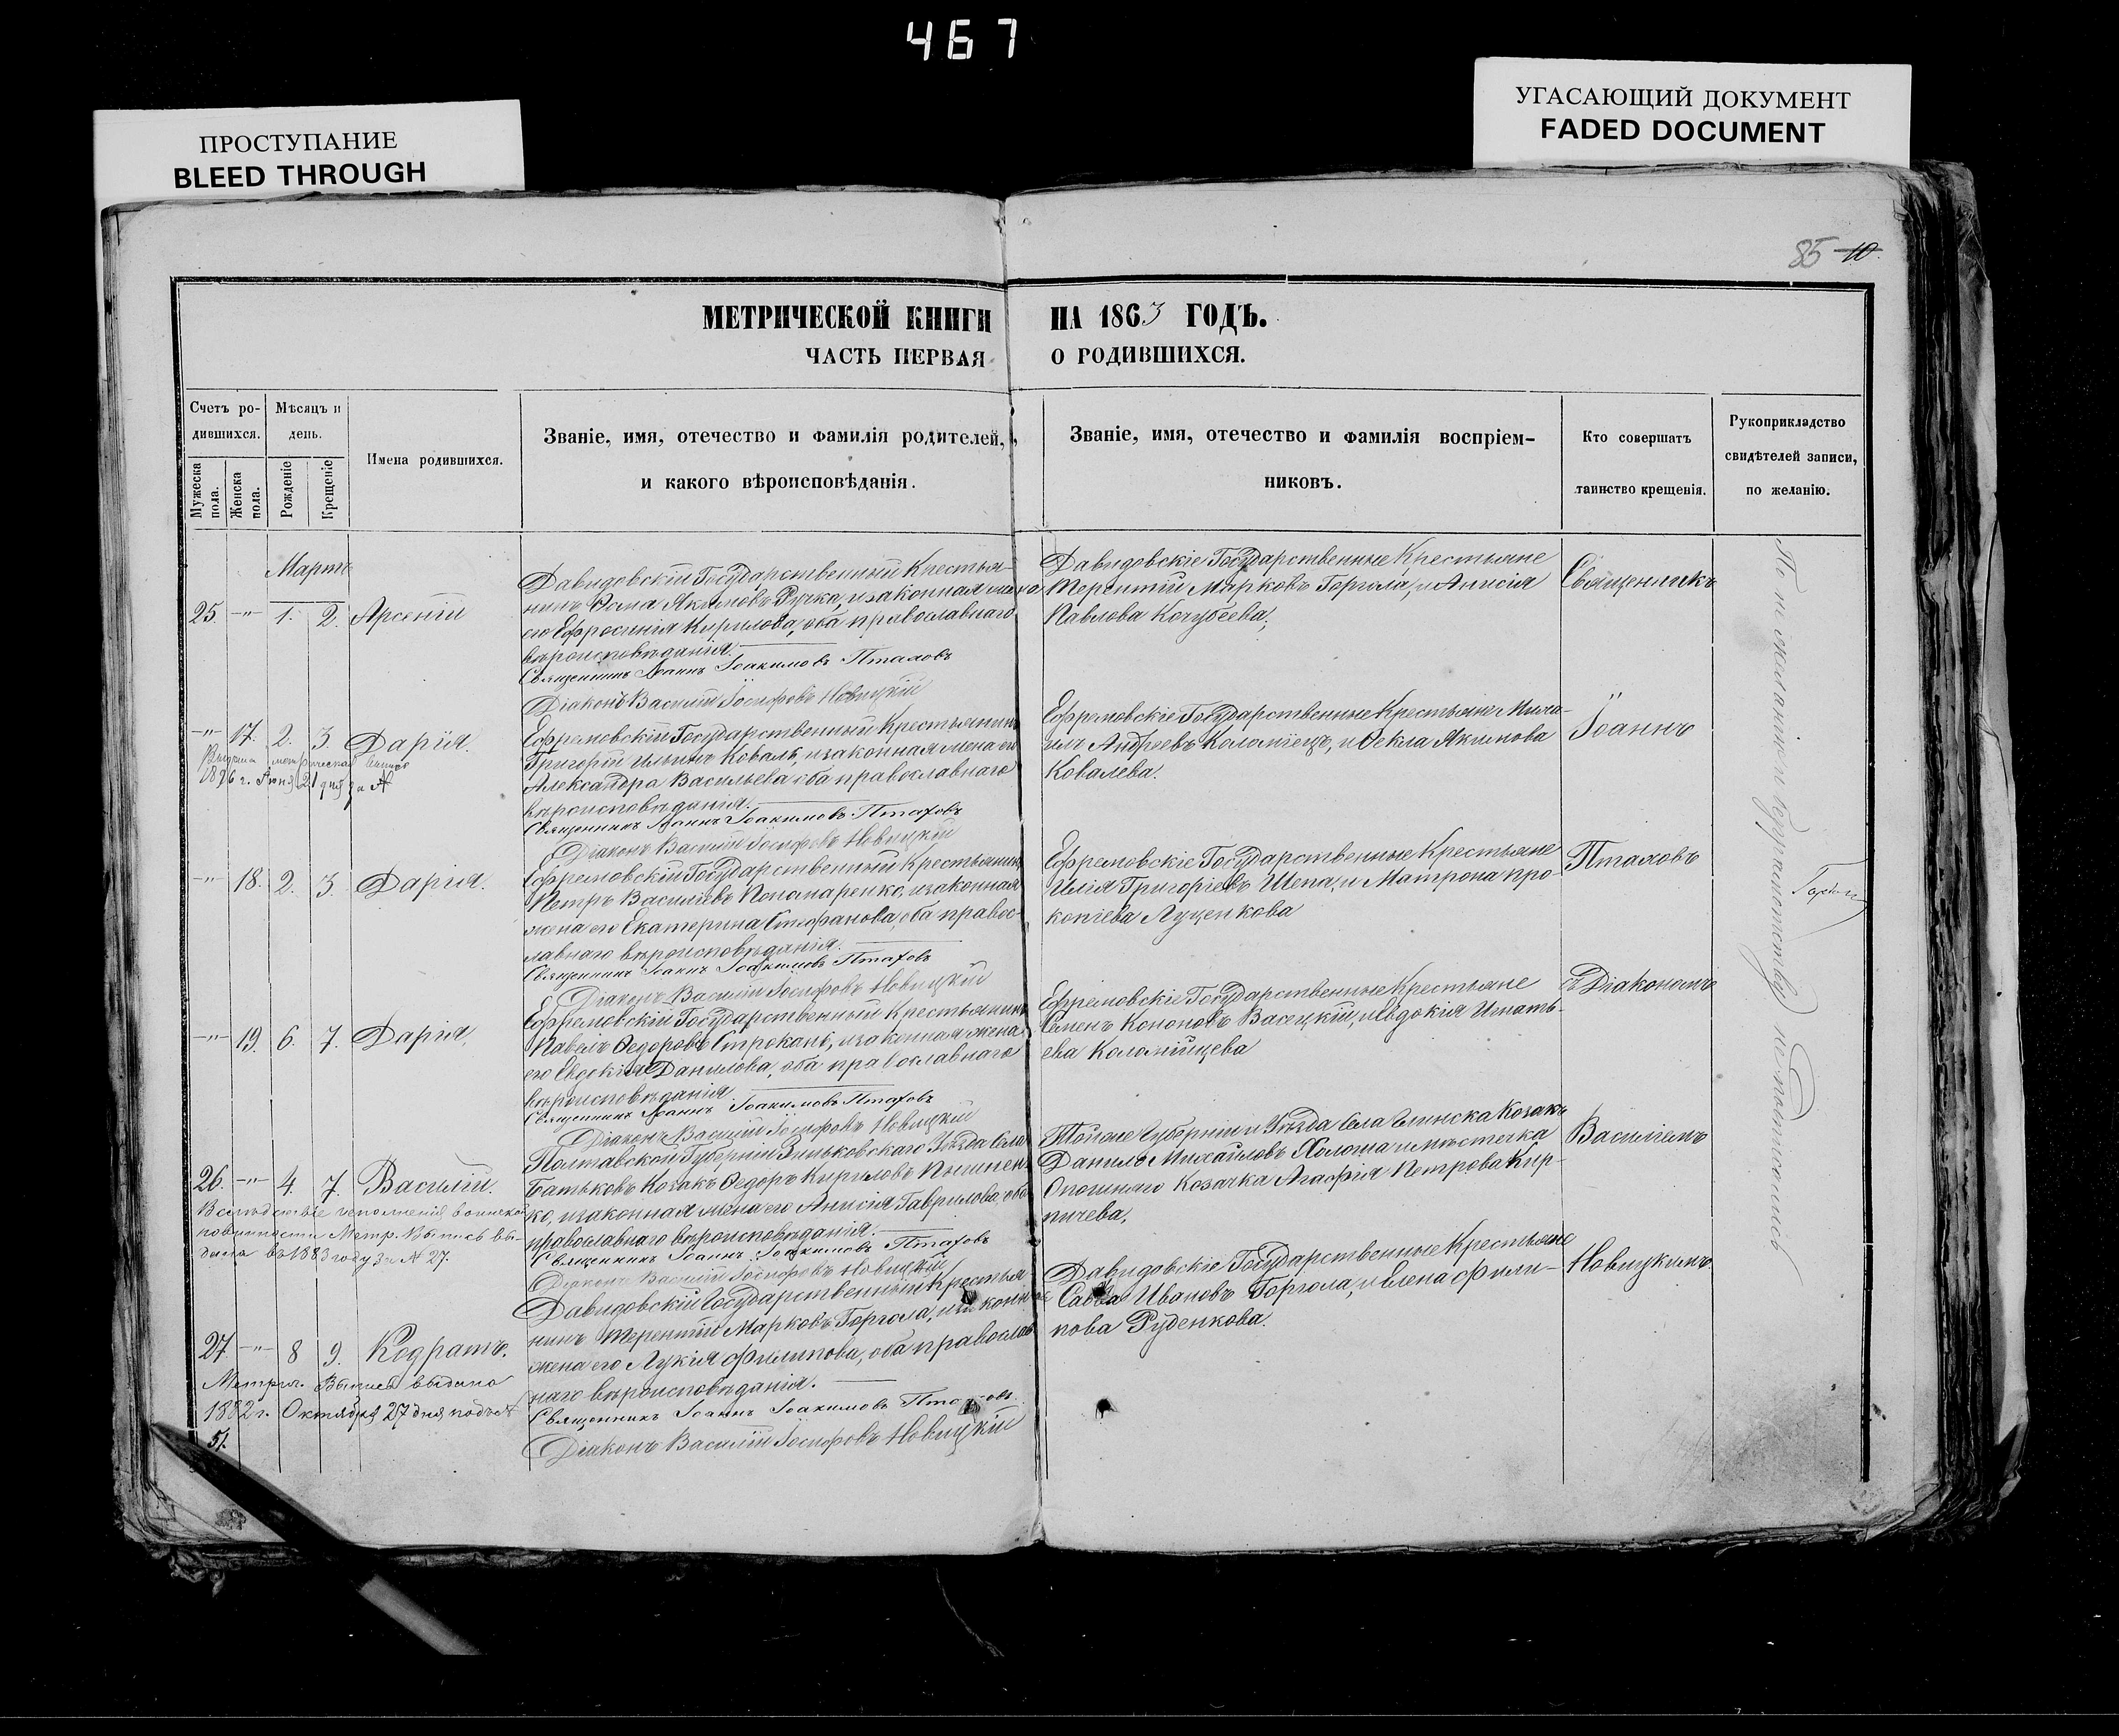 467
ПРОСТУПАНИЕ
BLEED THROUGH
УГАСАЮЩИЙ ДОКУМЕНТ
FADED DOCUMENT
85 10.
МЕТРИЧЕСКОЙ КНИГИ НА 1863 ГОДЪ.
ЧАСТЬ ПЕРВАЯ О РОДИВШИХСЯ.
Счетъ ро-
дившихся.
Мужеска пола.
Женска пола.
Мѣсяцъ и
день.
Рожденіе
Крещеніе
Имена родившихся.
Званіе, имя, отечество и фамилія родителей,
и какого вѣроисповѣданія.
Званіе, имя, отечество и фамилія воспріем-
никовъ.
Кто совершатъ
таинство крещенія.
Рукоприкладство
свидѣтелей записи,
по желанію.
Мартъ
25. -"- 1. 2. Арсеній
Давидовскій Государственный Крестья-
нинъ Ѳома Якимовъ Ручка, и законная жена
его Ефросинія Кирилова, оба православнаго
вѣроисповѣданія.
Священникъ Іоаннъ Іоакимовъ Птаховъ
Діаконъ Василій Іосифовъ Новицкій
Давидовскіе Государственные Крестьяне
Терентій Марковъ Горгола, и Анисія
Павлова Кочубеева;
-"- 17. 2. 3. Дарія.
Выдана метрическая выпись
1896 г. Іюня 21 дня за №
Ефремовскій Государственный Крестьянинъ
Григорій Ильинъ Коваль, и законная жена его
Александра Васильева оба православнаго
вѣроисповѣданія.
Священникъ Іоаннъ Іоакимовъ Птаховъ
Діаконъ Василій Іосифовъ Новицкій
Ефремовскіе Государственные Крестьяне Миха-
илъ Андреевъ Коломіецъ, и Ѳекла Якимова
Ковалева.
-"- 18. 2. 3. Дарія.
Ефремовскій Государственный Крестьянинъ
Петръ Василіевъ Пономаренко, и законная
жена его Екатерина Стефанова, оба правос-
лавнаго вѣроисповѣданія.
Священникъ Іоаннъ Іоакимовъ Птаховъ
Діаконъ Василій Іосифовъ Новицкій
Ефремовскіе Государственные Крестьяне
Илія Григоріевъ Шепа, и Матрона Про-
копіева Луценкова
-"- 19. 6. 7. Дарія.
Ефремовскій Государственный Крестьянинъ
Павелъ Ѳедоровъ Строкань, и законная жена
его Евдокія Данилова, оба православнаго
вѣроисповѣданія.
Священникъ Іоаннъ Іоакимовъ Птаховъ
Діаконъ Василій Іосифовъ Новицкій
Ефремовскіе Государственные Крестьяне
Семенъ Кононовъ Васецкій, и Евдокія Игнать-
ева Коломійцева
26. -"- 4. 7. Василій.
Вслѣдствіе исполненія воинской
повинности Метр. Выпись вы-
дана въ 1883 году за № 27.
Полтавской Губерніи Зиньковскаго Уѣзда Села
Батьковъ Козакъ Ѳедоръ Кириловъ
ко, и законная жена его Анисія Гаврилова, оба
православнаго вѣроисповѣданія.
Священникъ Іоаннъ Іоакимовъ Птаховъ
Діаконъ Василій Іосифовъ Новицкій
Тойже Губерніи и Уѣзда Села Глинска Козакъ
Данило Михайловъ Холоша и мѣстечка
Опошняго Козачка Агафія Петрова Кир-
пичева,
27. -"- 8 9. Кодратъ.
Метрич. Выпись выдана
1882 г. Октября 27 дня подъ №
51.
Давидовскій Государственный Крестья-
нинъ Терентій Марковъ Горгола, и законная
жена его Лукія Филипова, оба православ-
наго вѣроисповѣданія.
Священникъ Іоаннъ Іоакимовъ Птаховъ
Діаконъ Василій Іосифовъ Новицкій
Давидовскіе Государственные Крестьяне
Савва Ивановъ Горгола, и Елена Фили-
пова Руденкова.
Священникъ
Іоаннъ
Птаховъ
съ Діакономъ
Василіемъ
Новицкимъ.
По не желанію и безграмотству не подписались